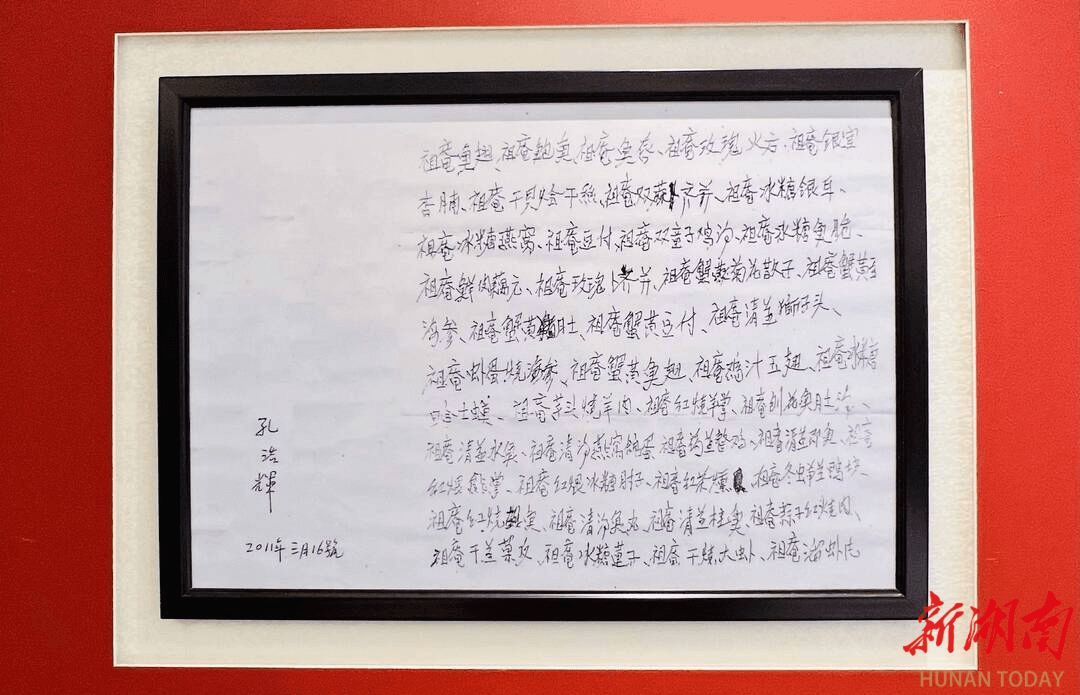 祖庵鱼翅、祖庵鲍鱼、祖庵鱼唇、祖庵玫瑰火方、祖庵银
杏脯、祖庵干贝烩干丝、祖庵双麻齐并、祖庵冰糖银耳、
祖庵冰糖燕窝、祖庵豆付、祖庵双童子鸡汤、祖庵冰糖鱼脆、
祖庵鲜肉藕元、祖庵玫瑰卜齐并、祖庵蟹菊花散子、祖庵蟹黄
海参、祖庵蟹黄肚、祖庵蟹黄豆付、祖庵清盐狮子头、
祖庵虾蛋烧海参、祖庵蟹黄鱼翅、祖庵鸡汁五翅、祖庵冰糖
哈士蟆、祖庵芋头烧羊肉、祖庵红烧羊掌、祖庵刨花鱼肚
祖庵清盐水鱼、祖庵清汤燕窝鸽蛋、祖庵整鸡、祖庵清盐鱼、祖庵
红煨熊掌、祖庵红煨冰糖肘子、祖庵红茶燻、祖庵冬虫鸭块
祖庵红烧鱼、祖庵清汤鱼丸、祖庵清盐桂鱼、祖庵蒜子红烧肉、
祖庵干兰、祖庵冰糖莲子、祖庵干烧大虾、祖庵溜虾片
孔浩輝
2011年三月16號
新湖南
HUNAN TODAY